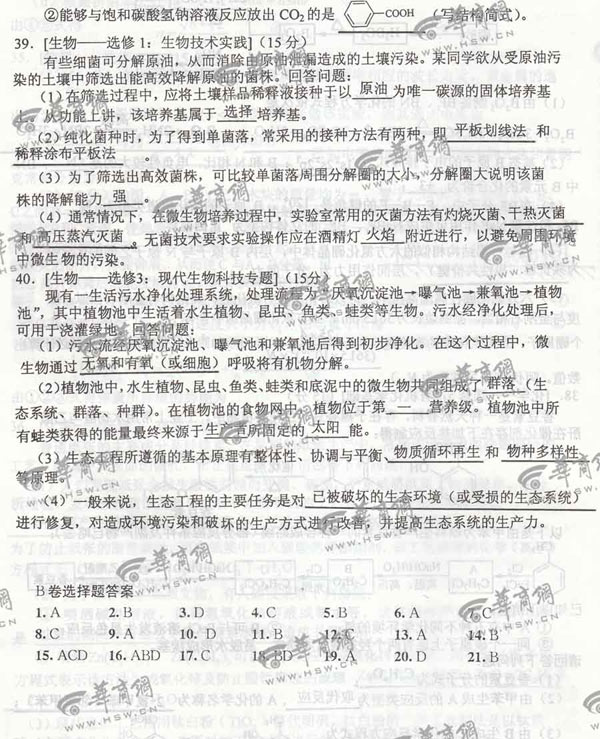 ②能够与饱和碳酸氢钠溶液反应放出 CO₂的是 COOH (写结构简式)。
39. [生物——选修 1：生物技术实践] (15 分)
有些细菌可分解原油，从而消除由原油泄漏造成的土壤污染。某同学欲从受原油污
染的土壤中筛选出能高效降解原油的菌株。回答问题：
(1) 在筛选过程中，应将土壤样品稀释液接种于以 原油 为唯一碳源的固体培养基
上，从功能上讲，该培养基属于 选择 培养基。
(2) 纯化菌种时，为了得到单菌落，常采用的接种方法有两种，即 平板划线法 和
稀释涂布平板法 。
(3) 为了筛选出高效菌株，可比较单菌落周围分解圈的大小，分解圈大说明该菌
株的降解能力 强 。
(4) 通常情况下，在微生物培养过程中，实验室常用的灭菌方法有灼烧灭菌、干热灭菌
和 高压蒸汽灭菌 。无菌技术要求实验操作应在酒精灯 火焰 附近进行，以避免周围环境
中微生物的污染。
40. [生物——选修3：现代生物科技专题] (15分)
现有一生活污水净化处理系统，处理流程为“厌氧沉淀池→曝气池→兼氧池→植物
池”，其中植物池中生活着水生植物、昆虫、鱼类、蛙类等生物。污水经净化处理后，
可用于浇灌绿地。回答问题：
(1) 污水流经厌氧沉淀池、曝气池和兼氧池后得到初步净化。在这个过程中，微
生物通过 无氧和有氧（或细胞） 呼吸将有机物分解。
(2)植物池中，水生植物、昆虫、鱼类、蛙类和底泥中的微生物共同组成了 群落 (生
态系统、群落、种群)。在植物池的食物网中，植物位于第 一 营养级。植物池中所
有蛙类获得的能量最终来源于生产者所固定的 太阳 能。
(3) 生态工程所遵循的基本原理有整体性、协调与平衡、物质循环再生 和 物种多样性
等原理。
(4) 一般来说，生态工程的主要任务是对 已被破坏的生态环境（或受损的生态系统）
进行修复，对造成环境污染和破坏的生产方式进行改善，并提高生态系统的生产力。
B 卷选择题答案
1. A 2. B 3. D 4. C 5. B 6. A 7. C
8. C 9. A 10. D 11. B 12. C 13. A 14. B
15. ACD 16. ABD 17. C 18. BD 19. A 20. D 21. B
華商網
WWW.HSW.CN